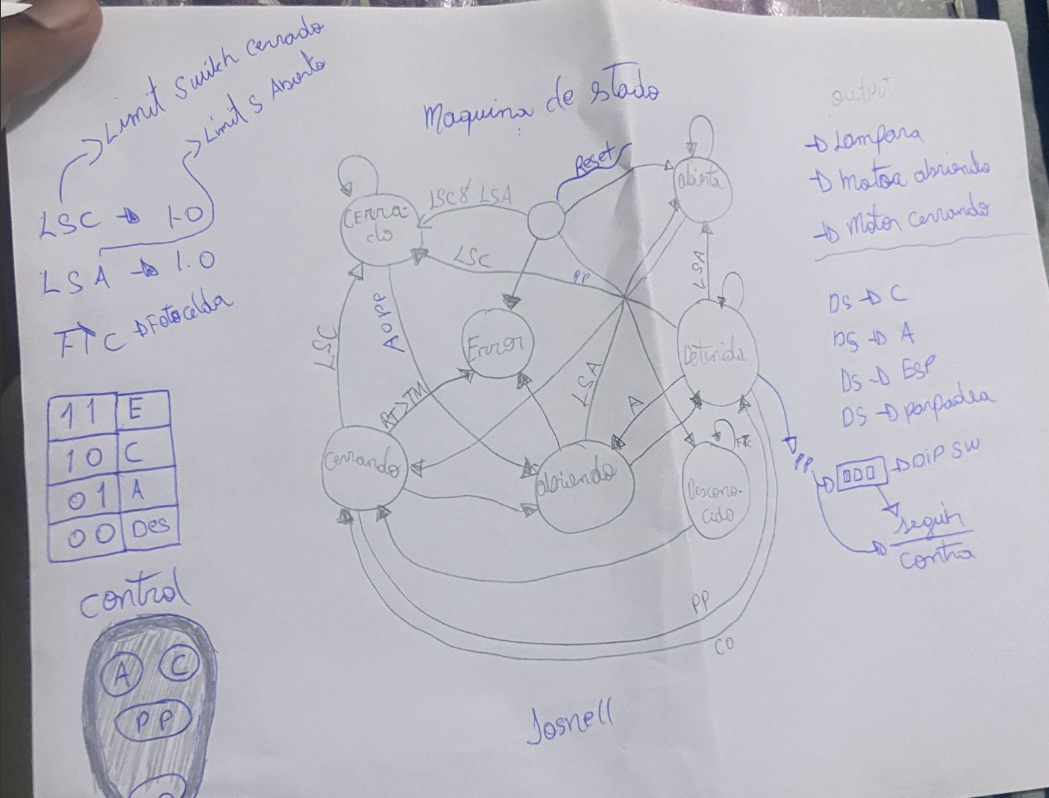 Limit Switch cerrado
Limit S Abierto
LSC → 1.0
LSA → 1.0
FTC → Fotocelda
11 E
10 C
01 A
00 Des
control
A
C
PP
Maquina de stado
Reset
abierta
Cerra
do
LSC & LSA
LSC
PP
LSA
LSC
A o PP
Error
Detenido
RT>TM
LSA
A
FTC
Cerrando
abriendo
Descono-
cido
PP
CO
Josnell
output
→ Lampara
→ Motor abriendo
→ Motor cerrando
DS → C
DS → A
DS → ESP
DS → parpadea
PP
→ DiP SW
seguir
contra